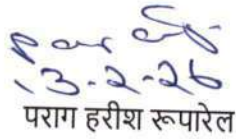 13-2-26
पराग हरीश रूपारेल